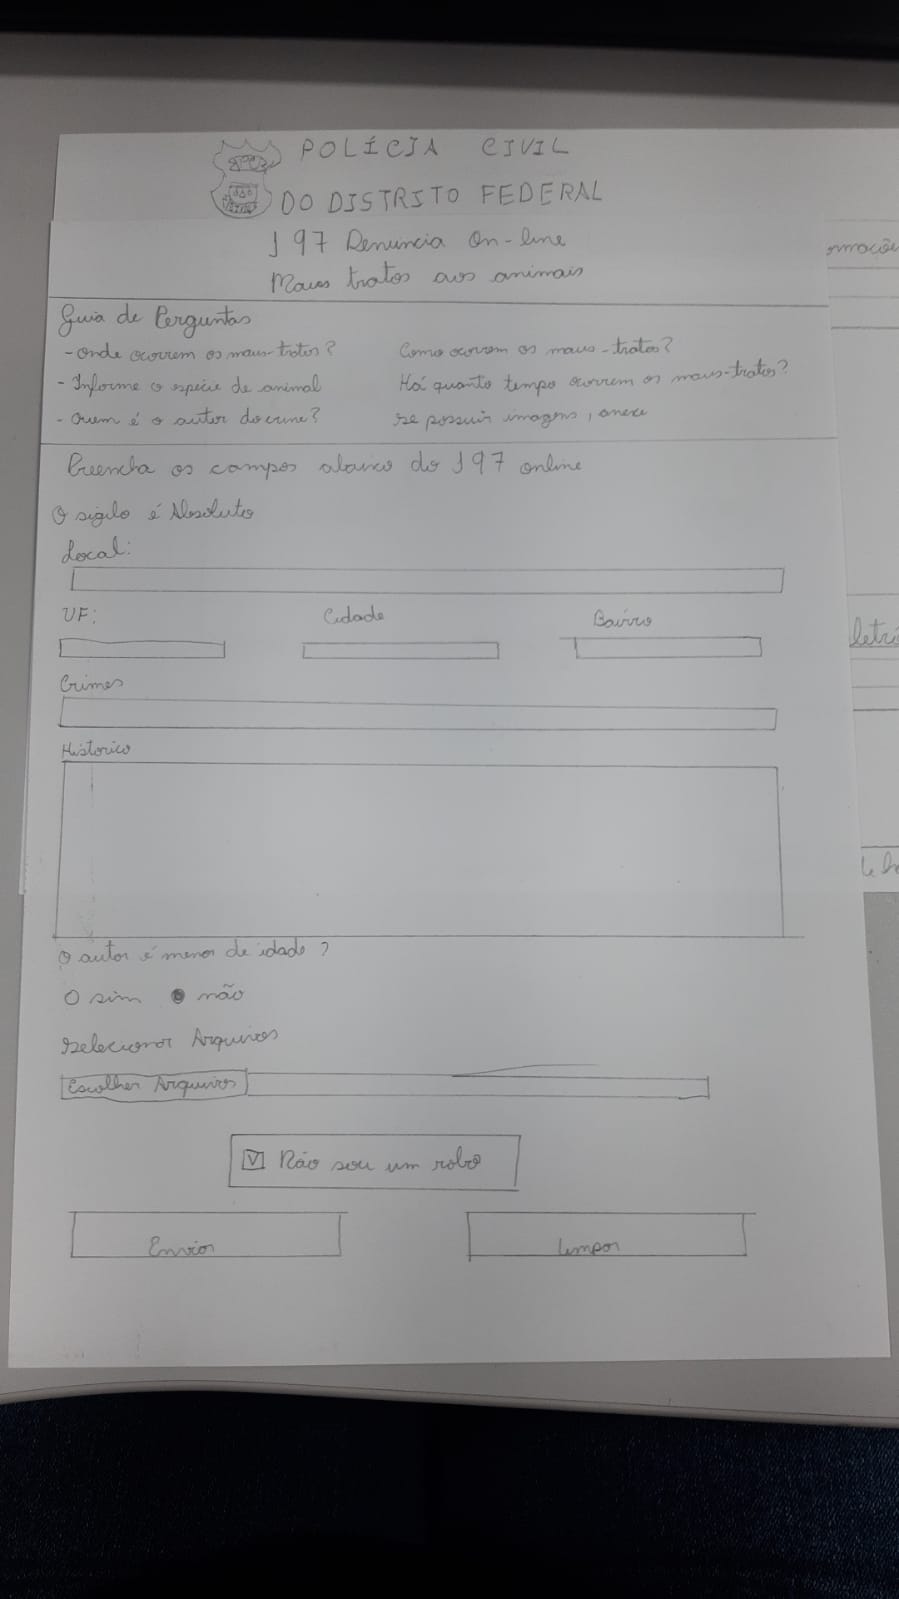 POLÍCIA CIVIL
DO DISTRITO FEDERAL
197 Denuncia On-line
Maus tratos aos animais
Guia de Perguntas
- Onde ocorrem os maus-tratos?
Como ocorrem os maus-tratos?
- Informe o espécie de animal
Há quanto tempo ocorrem os maus-tratos?
- Quem é o autor do crime?
Se possuir imagens, anexe
Preencha os campos abaixo do 197 online
O sigilo é Absoluto
Local:
UF:
Cidade
Bairro
Crimes
Historico
O autor é menor de idade?
O sim
não
Selecionar Arquivos
Escolher Arquivos
Não sou um robo
Enviar
Limpar
ormaçõe
letrô